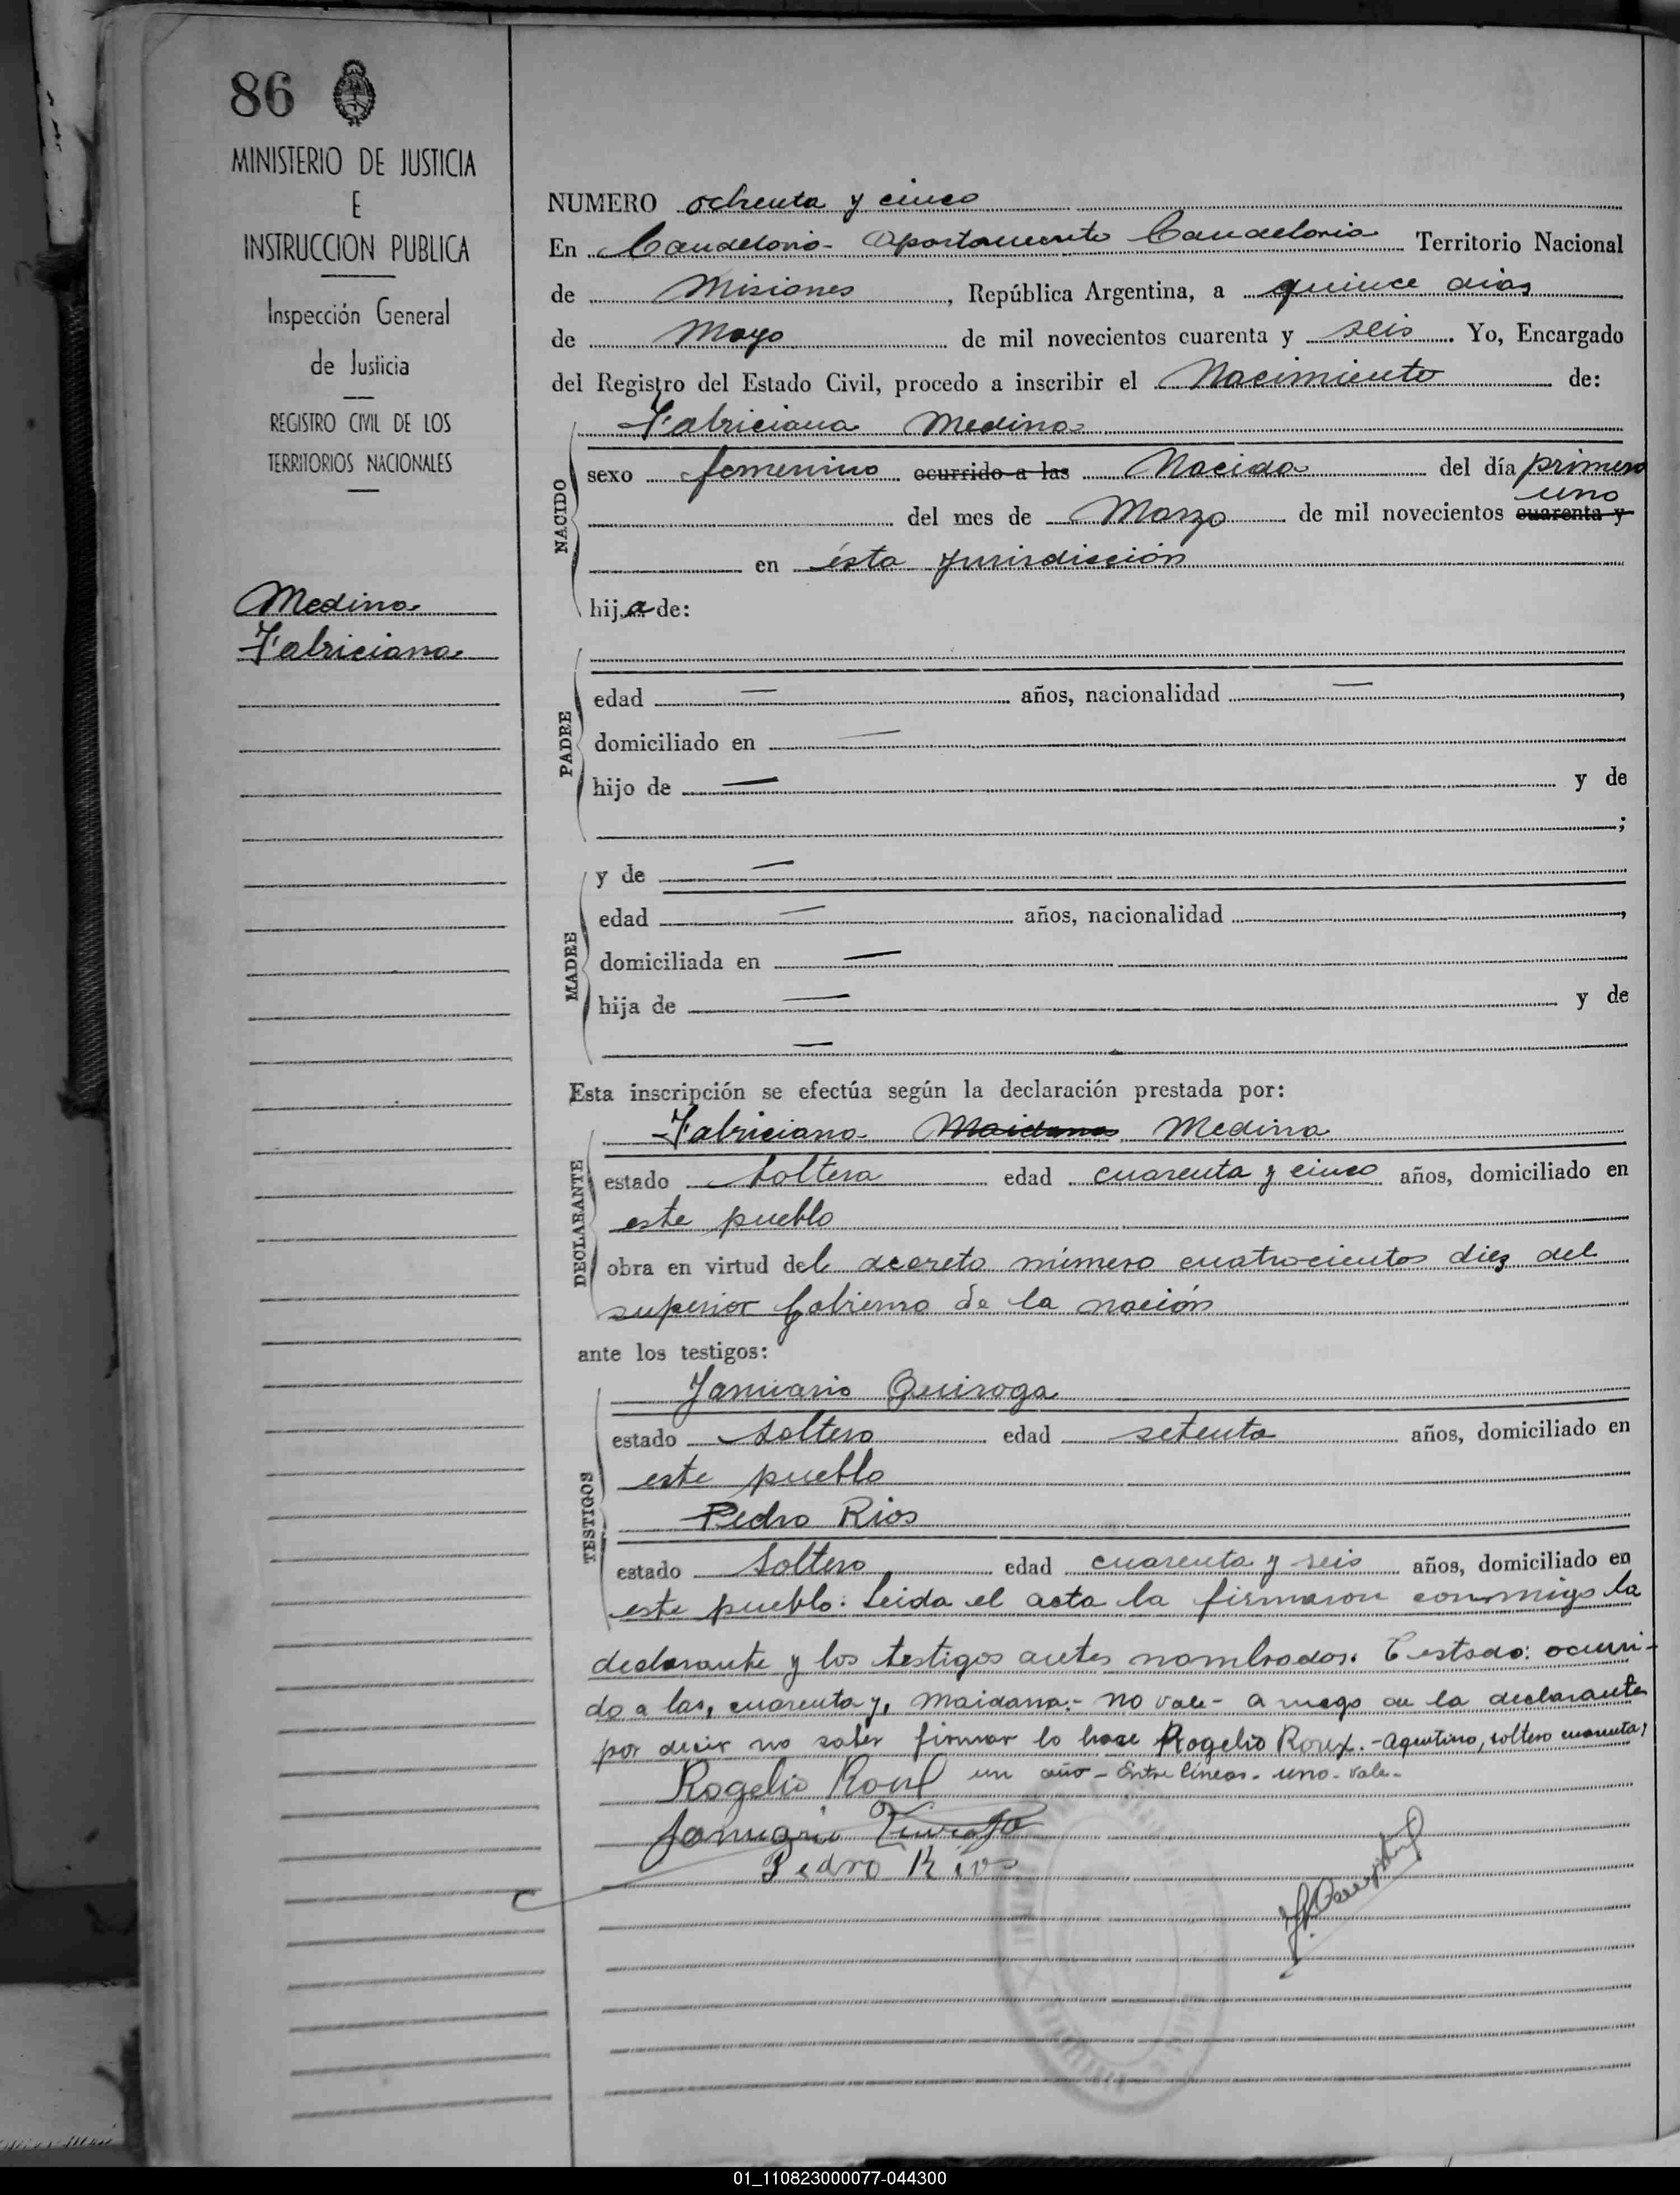 86
MINISTERIO DE JUSTICIA
E
INSTRUCCION PUBLICA
Inspección General
de Justicia
REGISTRO CIVIL DE LOS
TERRITORIOS NACIONALES
Medina
Fabriciana
NUMERO ochenta y cinco
En Candelaria - Departamento Candelaria Territorio Nacional
de Misiones, República Argentina, a quince dias
de Mayo de mil novecientos cuarenta y seis. Yo, Encargado
del Registro del Estado Civil, procedo a inscribir el Nacimiento de:
NACIDO
Fabriciana Medina
sexo femenino ocurrido a las Nacida del día primero
uno
del mes de Marzo de mil novecientos cuarenta y
en ésta jurisdicción
hija de:
PADRE
edad — años, nacionalidad —,
domiciliado en —
hijo de — y de
;
MADRE
y de —
edad — años, nacionalidad ,
domiciliada en —
hija de — y de
—
Esta inscripción se efectúa según la declaración prestada por:
DECLARANTE
Fabriciana Maidana Medina
estado Soltera edad cuarenta y cinco años, domiciliado en
este pueblo
obra en virtud del decreto número cuatrocientos diez del
superior Gobierno de la nación
ante los testigos:
TESTIGOS
Januario Quiroga
estado soltero edad setenta años, domiciliado en
este pueblo
Pedro Rios
estado Soltero edad cuarenta y seis años, domiciliado en
este pueblo. Leida el acta la firmaron conmigo la
declarante y los testigos antes nombrados. Testado: ocurri-
do a las, cuarenta y, Maidana.- no vale- a ruego de la declarante
por decir no saber firmar lo hace Rogelio Roux.- Argentino, soltero cuarenta y
un año - Entre lineas - uno - vale -
Rogelio Roux
Januario Quiroga
Pedro Rios
01_110823000077-044300